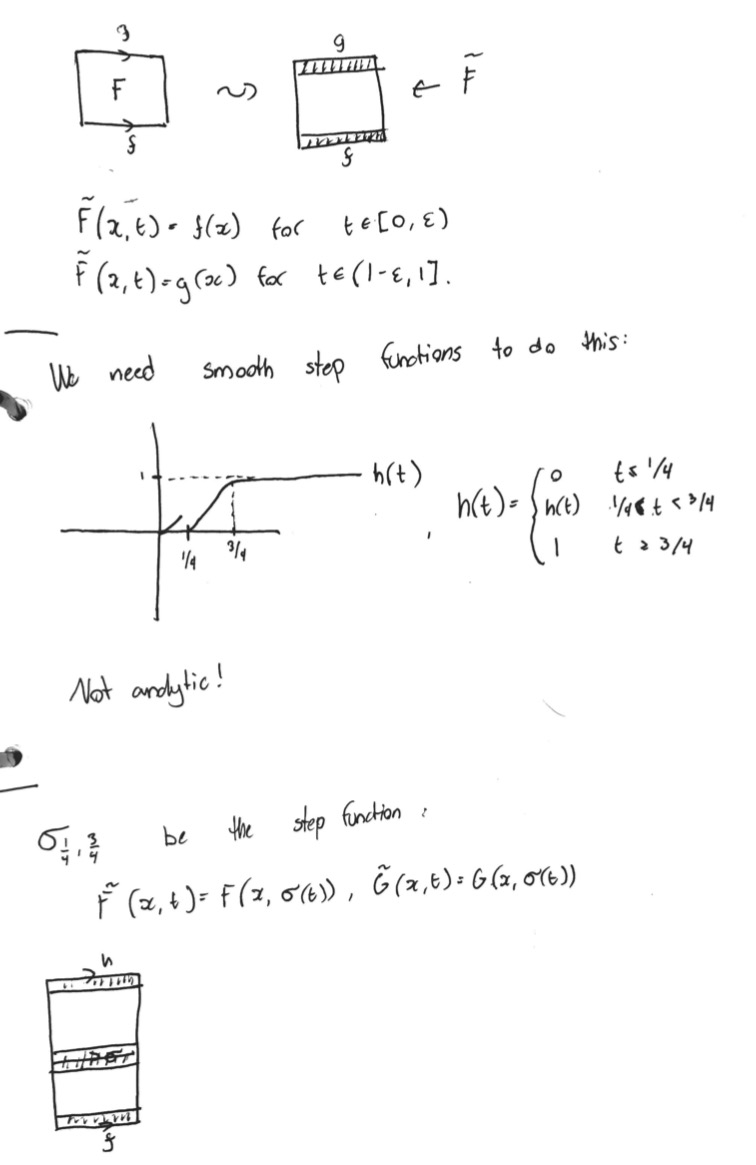 g g
F ⤳ ← F̃
f f
F̃(x,t) = f(x) for t ∈ [0, ε)
F̃(x,t) = g(x) for t ∈ (1-ε, 1].
We need smooth step functions to do this:
1 h(t)
1/4 3/4
, h(t) = { 0 t ≤ 1/4
h(t) 1/4 < t < 3/4
1 t ≥ 3/4
Not analytic!
σ_{1/4, 3/4} be the step function:
F̃(x,t) = F(x, σ(t)), G̃(x,t) = G(x, σ(t))
h
f